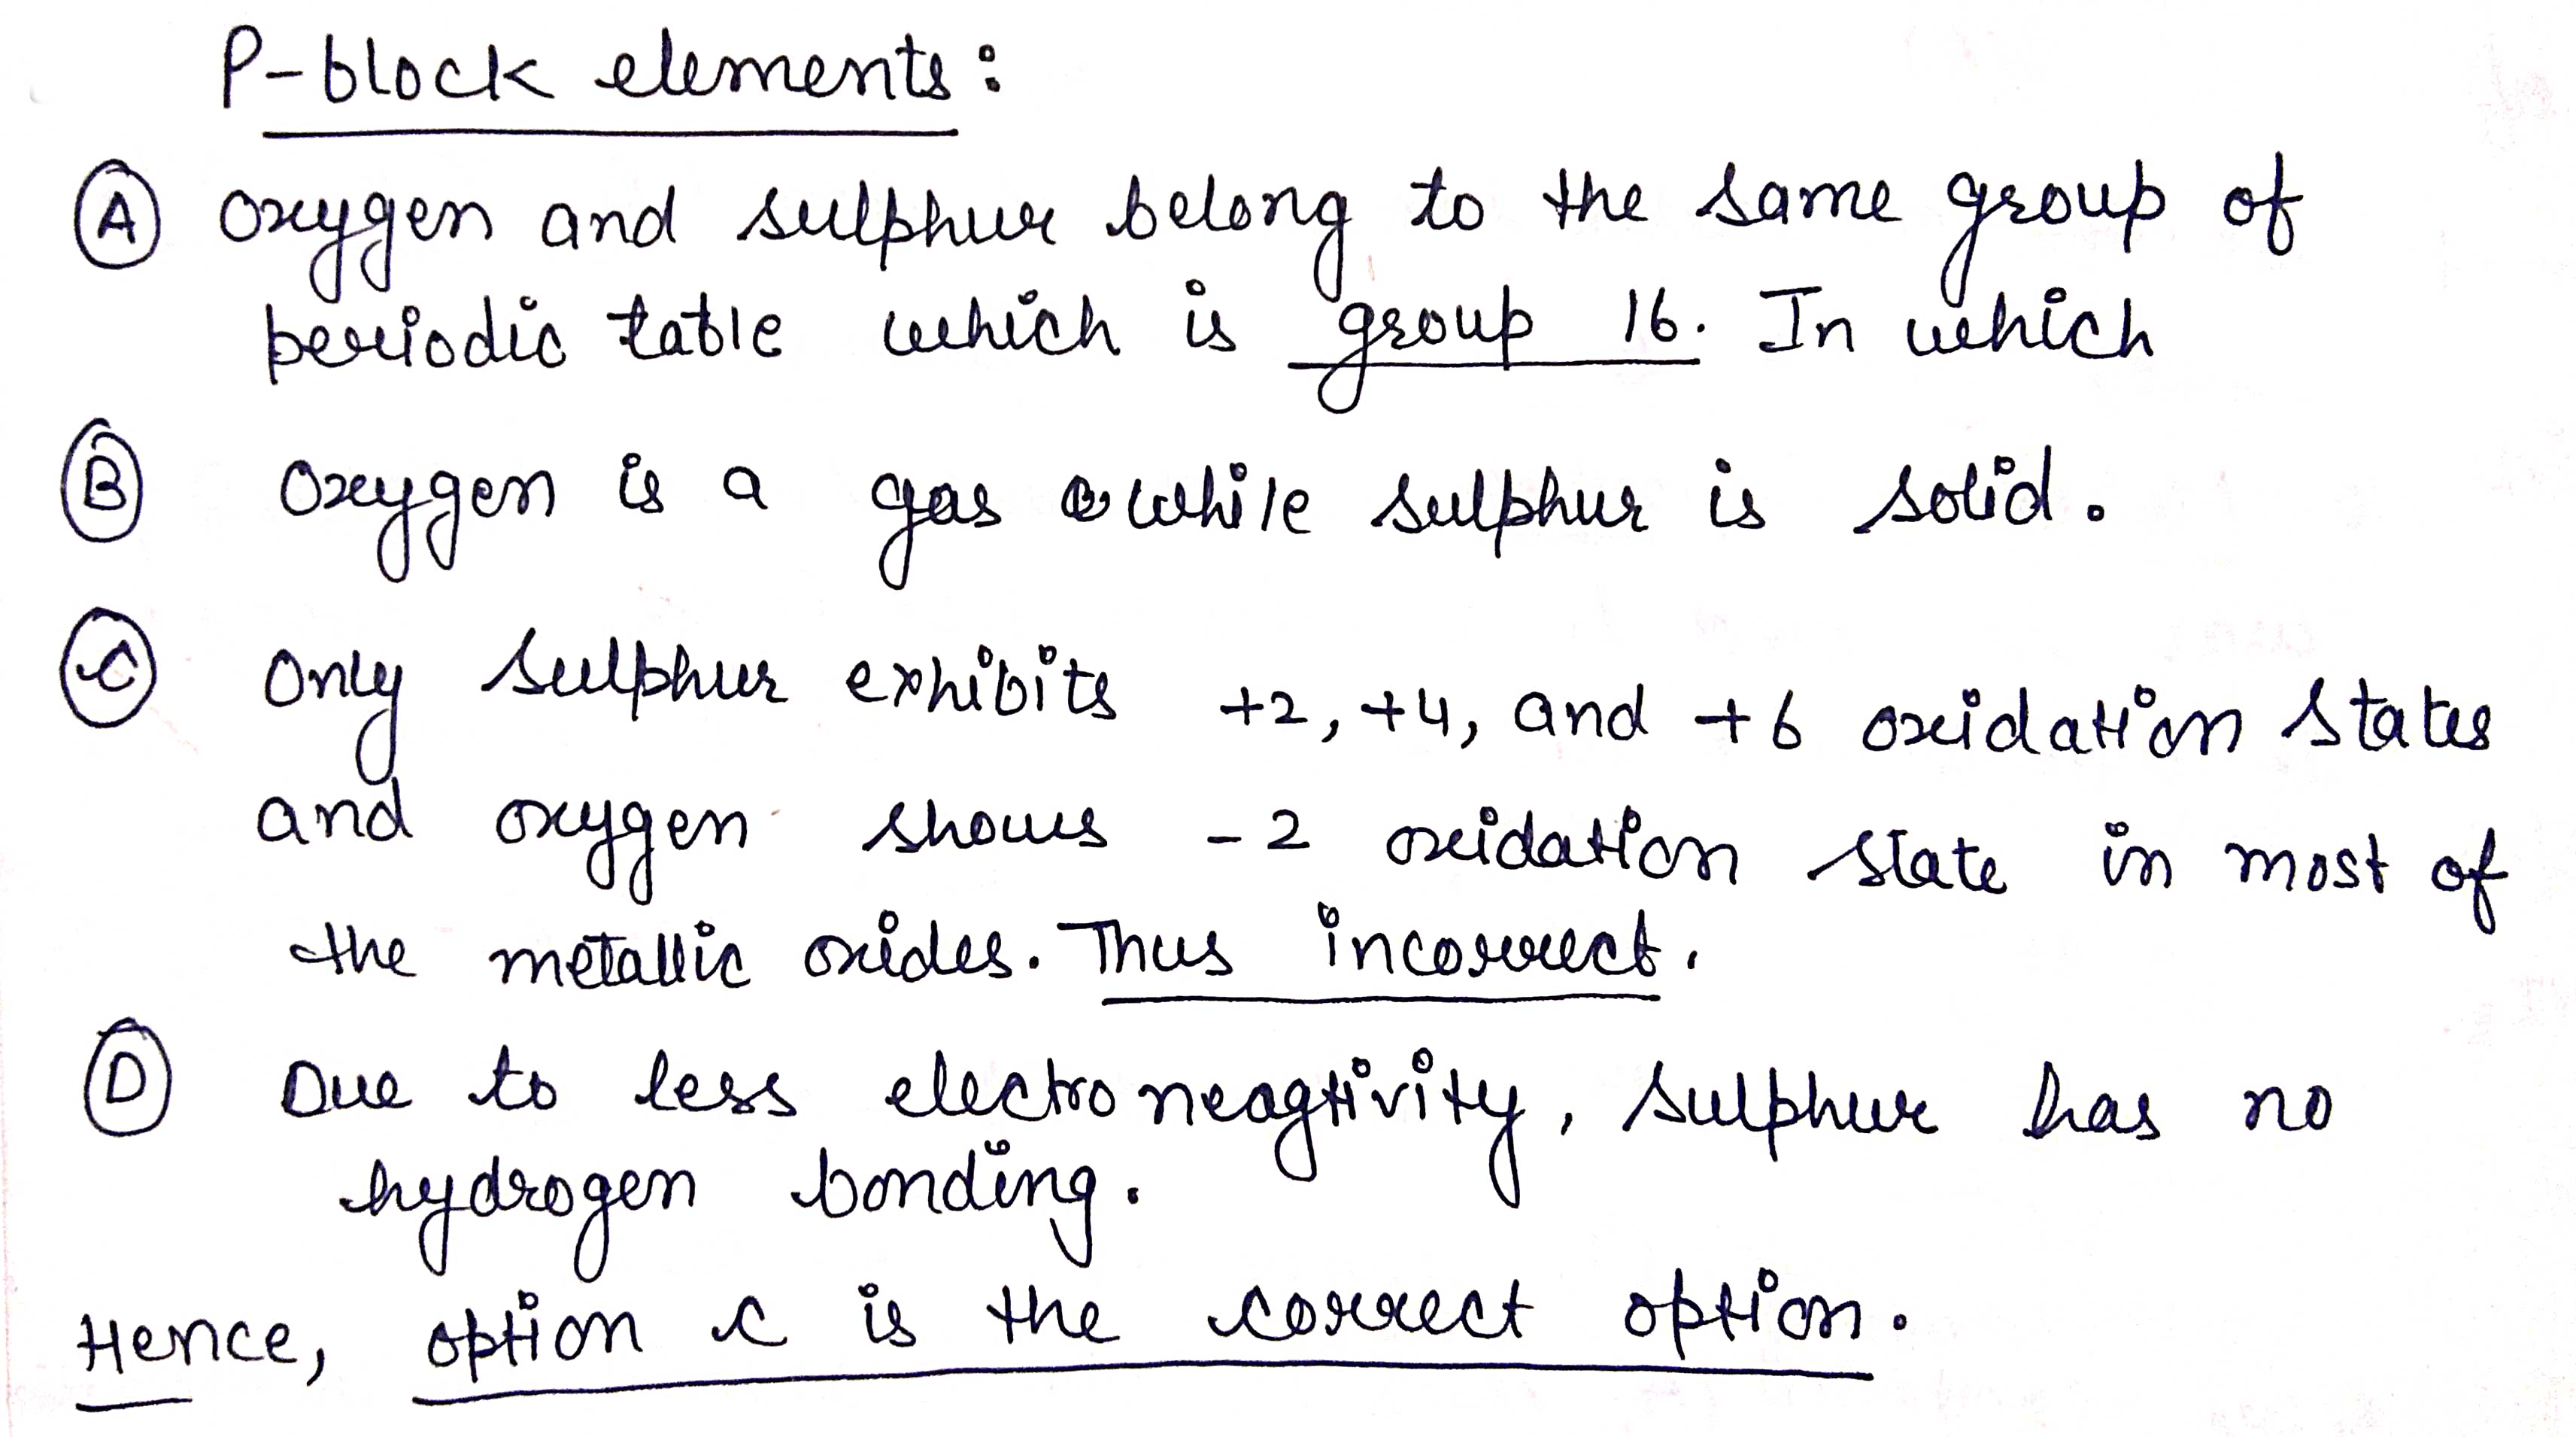 P-block elements:
A Oxygen and sulphur belong to the same group of
periodic table which is group 16. In which
B Oxygen is a gas while sulphur is solid.
C Only sulphur exhibits +2, +4, and +6 oxidation states
and oxygen shows -2 oxidation state in most of
the metallic oxides. Thus incorrect.
D Due to less electroneagtivity, sulphur has no
hydrogen bonding.
Hence, option C is the correct option.